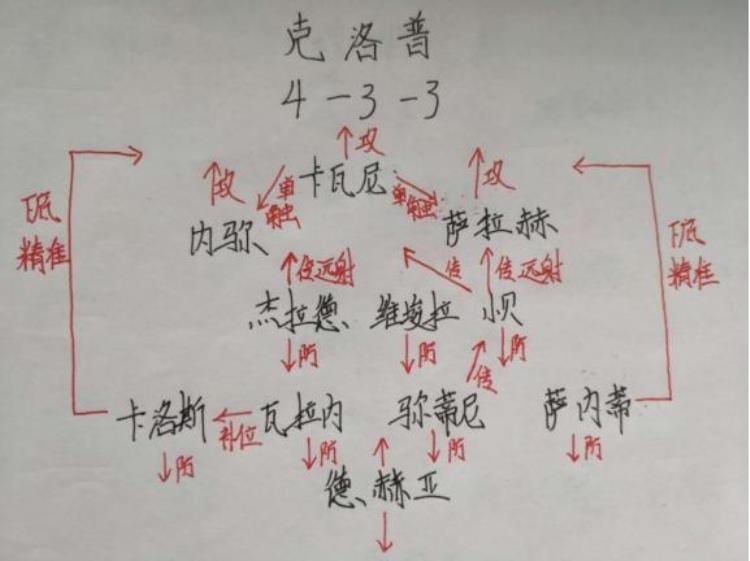 克洛普
4-3-3
攻
卡瓦尼
攻 单触 单触 攻
内马尔 萨拉赫
下底精准 下底精准
传远射 传 传远射
杰拉德 维埃拉 小贝
防 防 防
传
卡洛斯 补位 瓦拉内 马尔蒂尼 萨内蒂
防 防 防 防
德赫亚